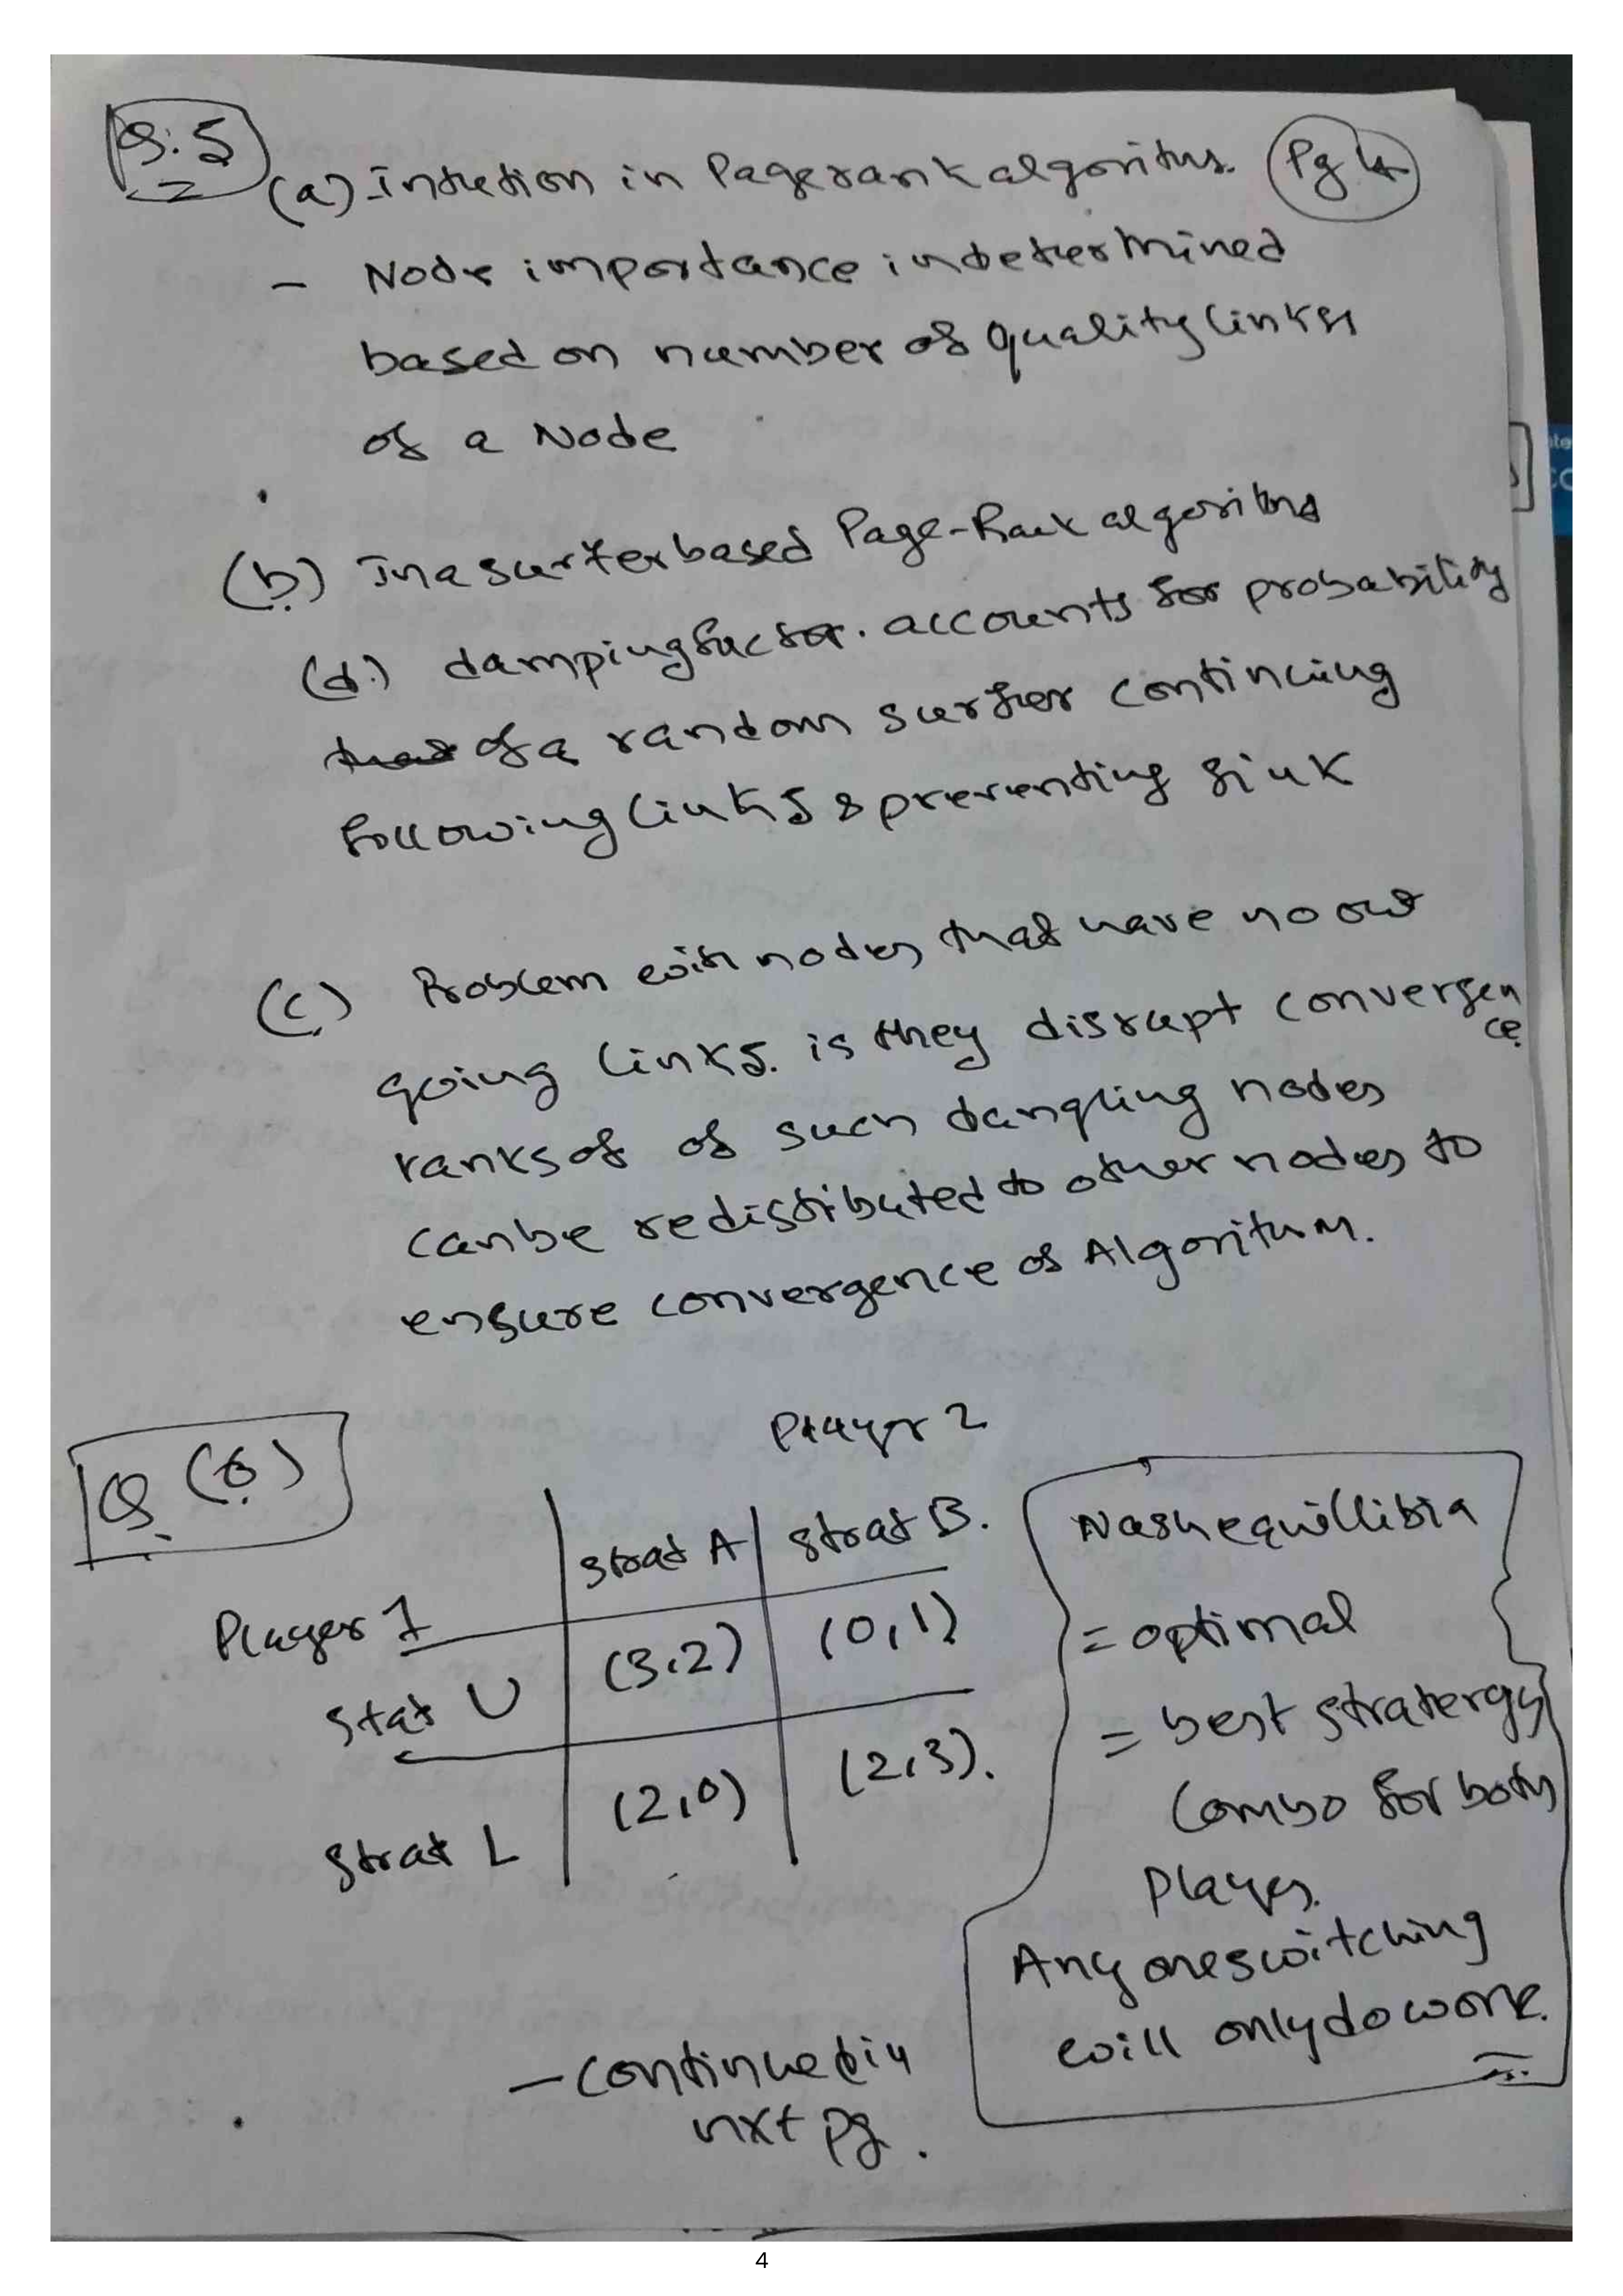 Q.5
(a) Intuetion in Pagerank algoritus. Pg 4
- Node importance in determined
based on number of quality links
of a Node
(b) In a surfer based Page-Rank algorithm
(d) damping factor. accounts for probability
of a random surfer continuing
following links & preventing sink
(c) Problem with nodes that have no out
going links. is they disrupt convergence.
ranks of of such dangling nodes
can be redistributed to other nodes to
ensure convergence of Algorithm.
Q (6)
Player 2
Strat A Strat B.
Player 1
Strat U (3,2) (0,1)
Strat L (2,0) (2,3).
Nash equillibria
= optimal
= best stratergy
Combo for both
players.
Any one switching
will only do worse.
- continued in
nxt pg.
4